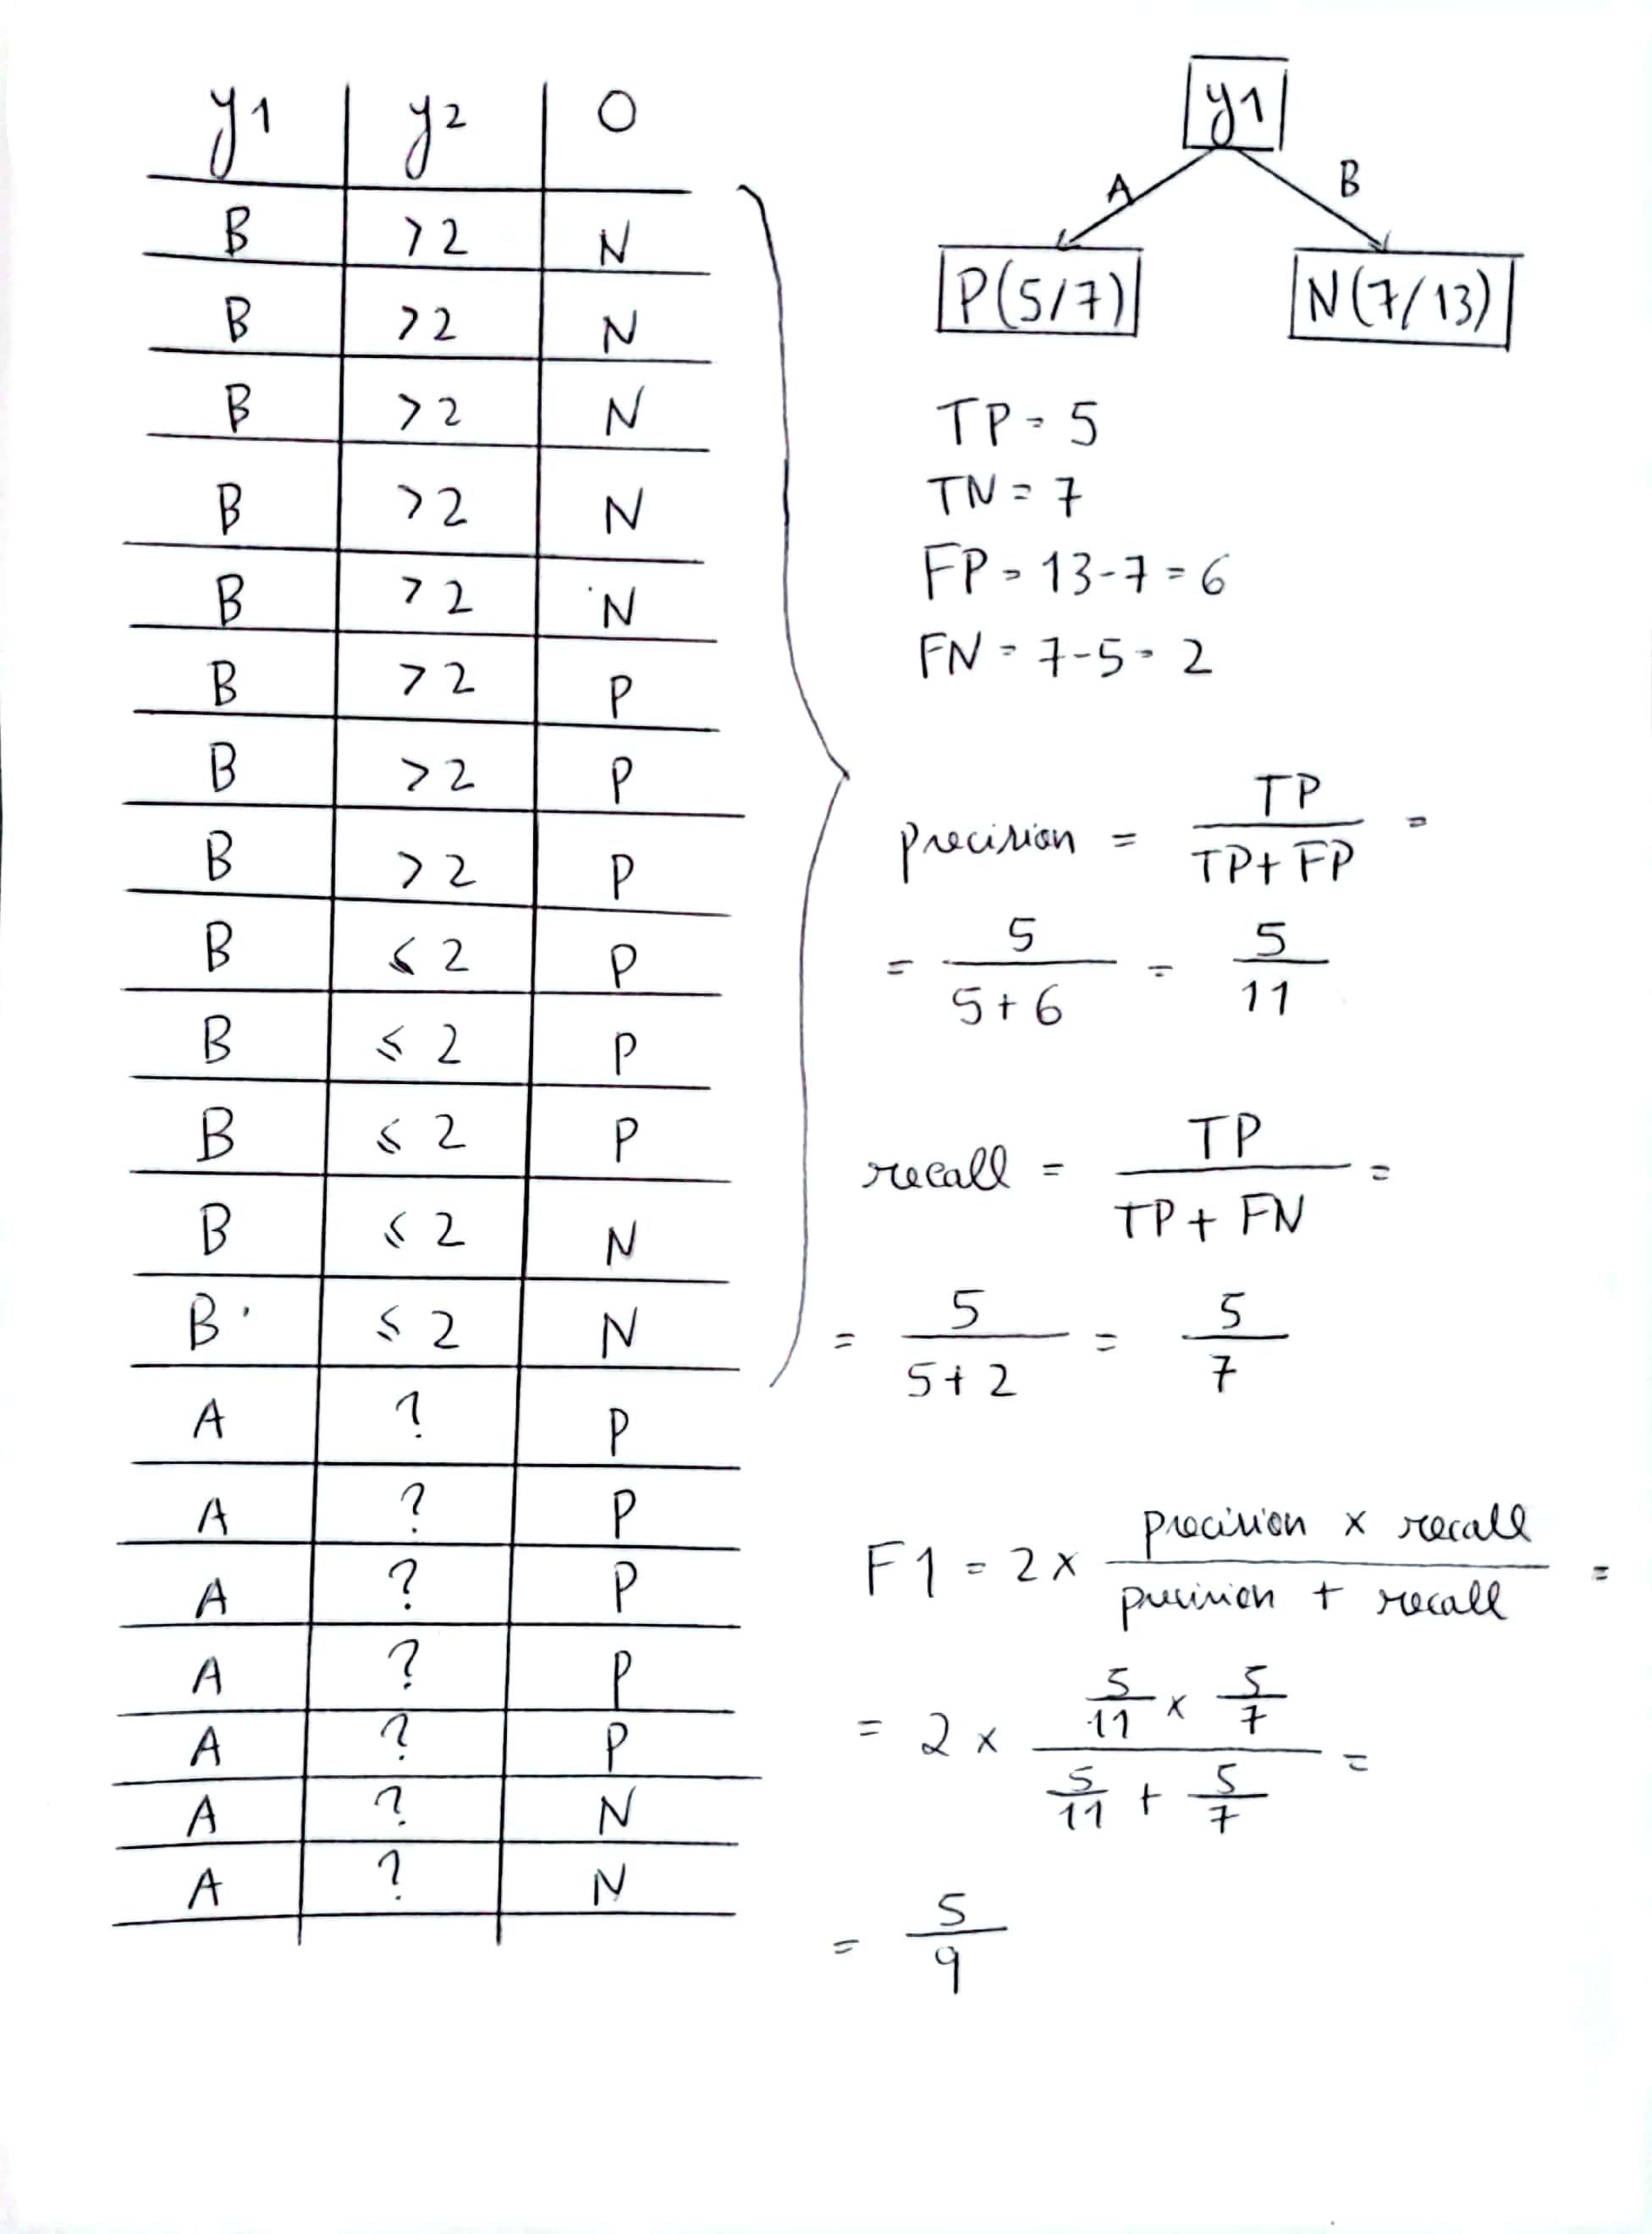 y1 y2 O
B >2 N
B >2 N
B >2 N
B >2 N
B >2 N
B >2 P
B >2 P
B >2 P
B ≤2 P
B ≤2 P
B ≤2 P
B ≤2 N
B ≤2 N
A ? P
A ? P
A ? P
A ? P
A ? P
A ? N
A ? N
y1
A B
P(5/7) N(7/13)
TP = 5
TN = 7
FP = 13-7 = 6
FN = 7-5 = 2
precision = TP / (TP + FP) =
= 5 / (5+6) = 5/11
recall = TP / (TP + FN) =
= 5 / (5+2) = 5/7
F1 = 2 × (precision × recall) / (precision + recall) =
= 2 × (5/11 × 5/7) / (5/11 + 5/7) =
= 5/9